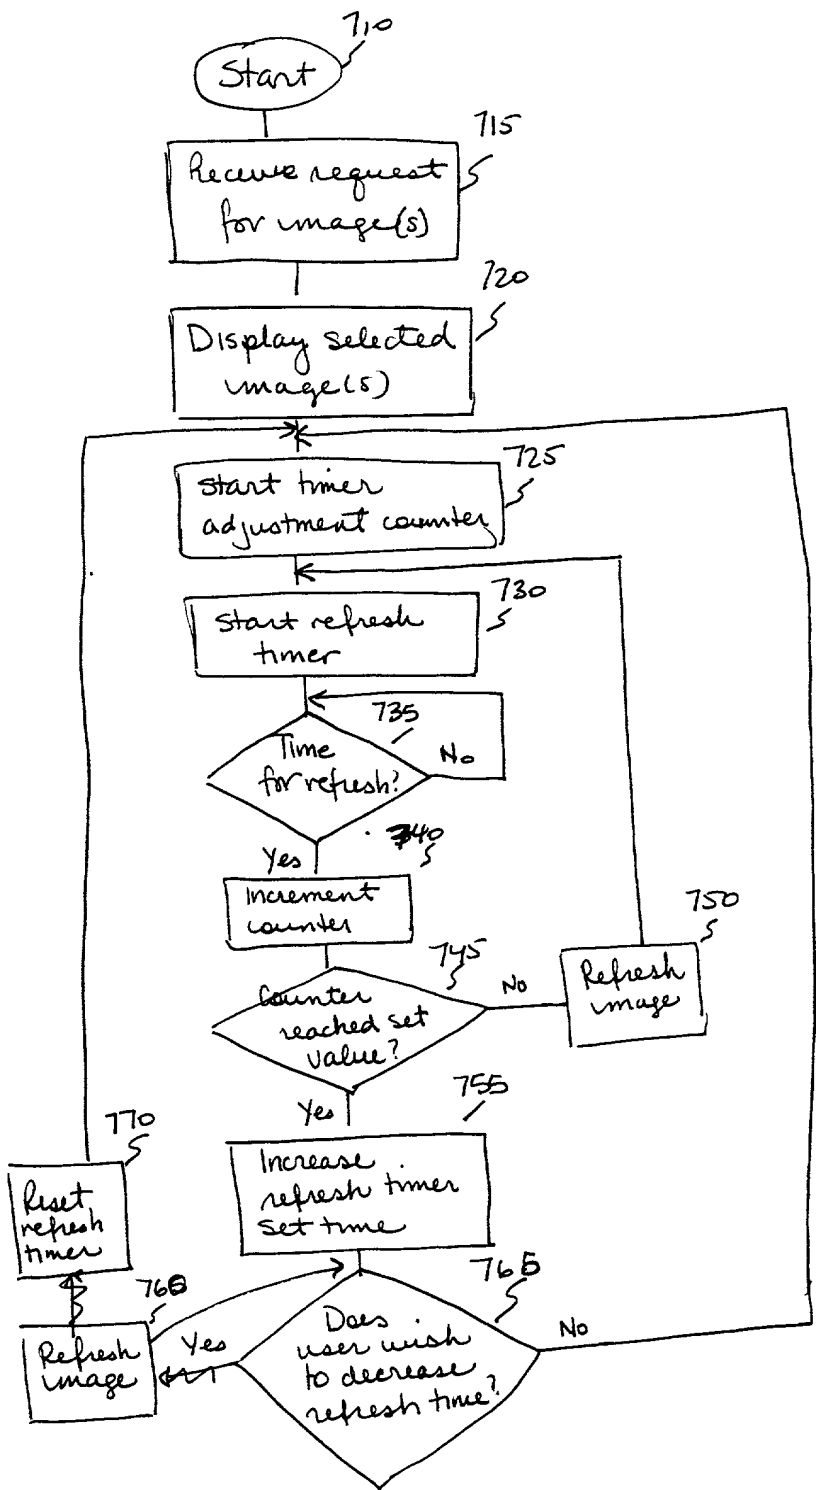 710
Start
715
Receive request
for image(s)
720
Display selected
image(s)
725
Start timer
adjustment counter
730
Start refresh
timer
735
Time
for refresh?
No
740
Yes
Increment
counter
750
745
Counter
reached set
value?
No
Refresh
image
755
Yes
770
Increase
refresh timer
set time
Reset
refresh
timer
765
760
Does
user wish
to decrease
refresh time?
Yes
No
Refresh
image